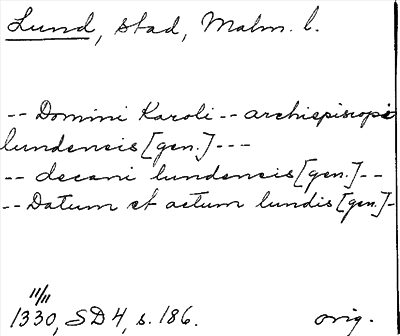 Lund, stad, Malm. l.
-- Domini Karoli -- archiepiscopi
lundensis [gen.] ---
-- decani lundensis [gen.] --
-- Datum et actum lundis [gen.] -
11/11
1330, SD 4, s. 186. orig.